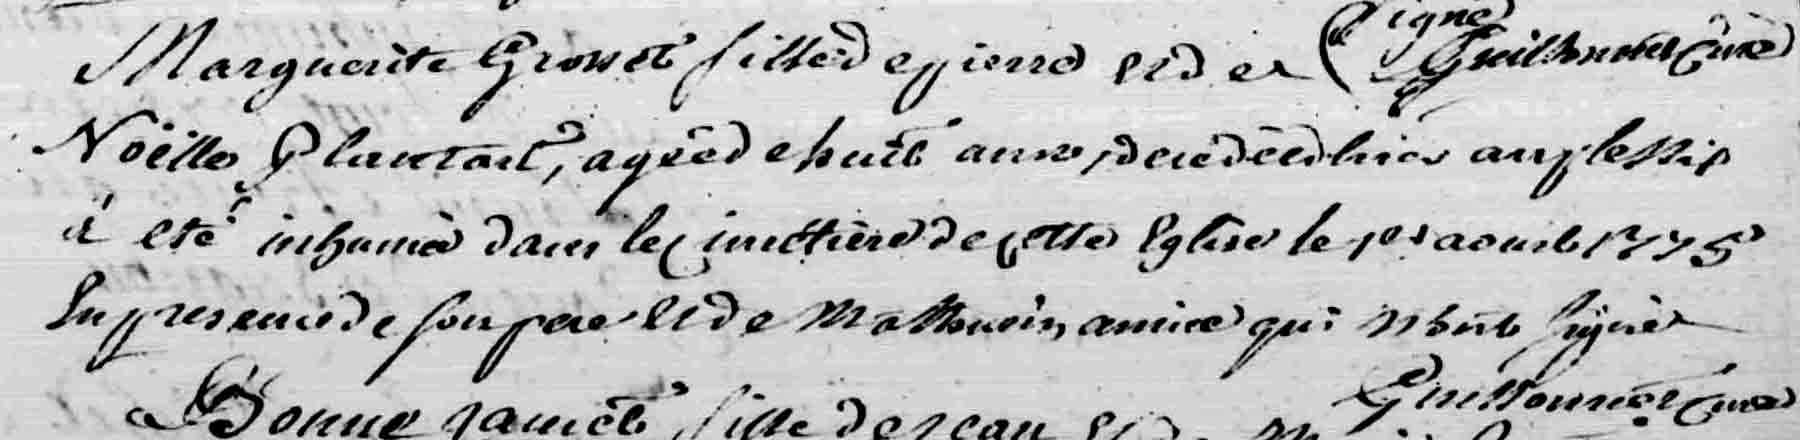 Signé
Marguerite Grosset fille de pierre Et de ( Guillonnet Curé
Noëlle Plantart, agée de huit ans, decèdée hier au plessis
à eté inhumée dans le Cimettiere de Cette Eglise le 1er aoust 1775
En presence de son pere Et de Mathurin amice qui N'ont signé
Guillonnet Curé
Bonne Jamet fille de Jean Et de